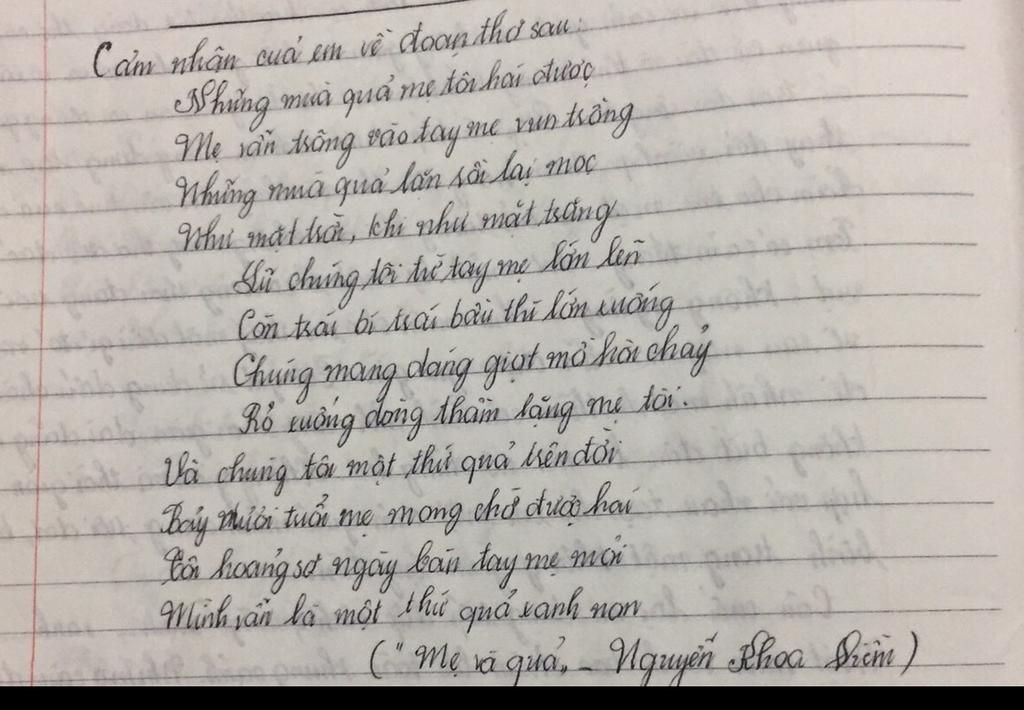 Cảm nhận cuả em về đoạn thơ sau:
Những muà quả mẹ tôi hái được
Mẹ vẫn trông vào tay mẹ vun trồng
Những muà quả lặn rồi lại mọc
Như mặt trời, khi như mặt trăng
Lũ chúng tôi từ tay mẹ lớn lên
Còn trái bí trái bầu thì lớn xuống
Chúng mang dáng giọt mồ hôi chảy
Rỏ xuống dòng thầm lặng mẹ tôi.
Và chúng tôi một thứ quả trên đời
Bảy mươi tuổi mẹ mong chờ được hái
Tôi hoảng sợ ngày bàn tay mẹ mỏi
Mình vẫn là một thứ quả xanh non
("Mẹ và quả" - Nguyễn Khoa Điềm)